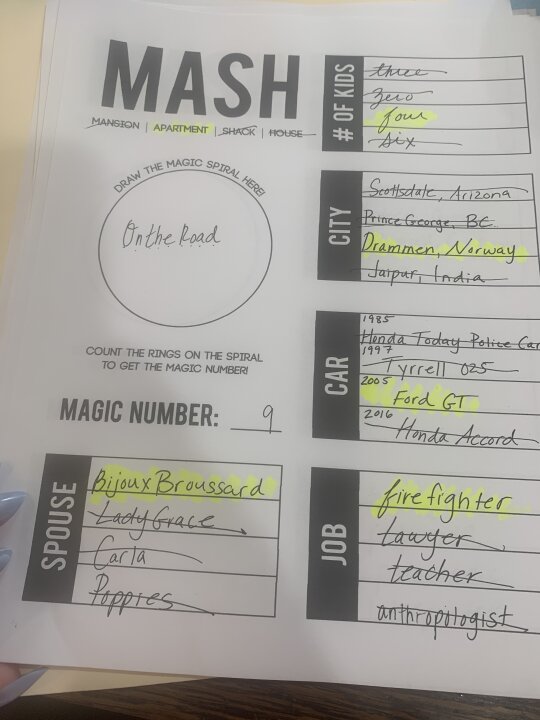 MASH
MANSION | APARTMENT | SHACK | HOUSE
DRAW THE MAGIC SPIRAL HERE!
On the Road
COUNT THE RINGS ON THE SPIRAL
TO GET THE MAGIC NUMBER!
MAGIC NUMBER: 9
# OF KIDS
three
zero
four
six
CITY
Scottsdale, Arizona
Prince George, BC
Drammen, Norway
Jaipur, India
CAR
1985
Honda Today Police Car
1997
Tyrrell 025
2005
Ford GT
2016
Honda Accord
SPOUSE
Bijoux Broussard
Lady Grace
Carla
Poppies
JOB
firefighter
lawyer
teacher
anthropologist